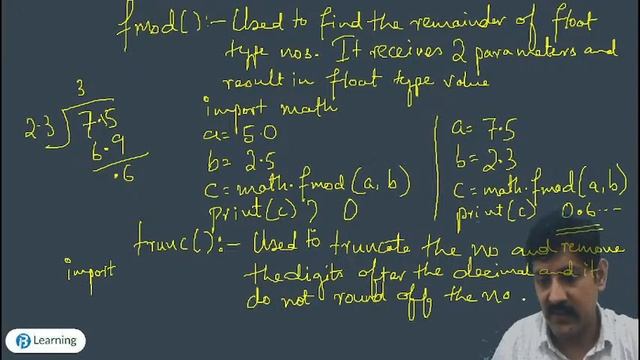 fmod():- Used to find the remainder of float
type nos. It receives 2 parameters and
result in float type value
3
2.3 7.5
6.9
.6
import math
a=5.0
b=2.5
c=math.fmod(a,b)
print(c) ? 0
a=7.5
b=2.3
c=math.fmod(a,b)
print(c) 0.6---
trunc():- Used to truncate the no and remove
the digits after the decimal and it
do not round off the no.
import
B Learning